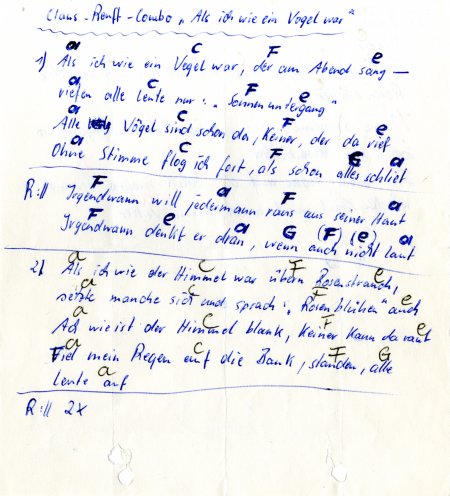 Claus-Renft-Combo „Als ich wie ein Vogel war"
a C F e
1) Als ich wie ein Vogel war, der am Abend sang —
a C F e
riefen alle Leute nur: „Sonnenuntergang"
a C F e
Alle Vögel sind schon da, Keiner, der da rief
a C F G a
Ohne Stimme flog ich fort, als schon alles schlief
F a F a
R:|| Irgendwann will jedermann raus aus seiner Haut
F e G (F) (e) a
Irgendwann denkt er dran, wenn auch nicht laut
a C F e
2) Als ich wie der Himmel war übern Rosenstrauch,
a C F e
setzte manche sich und sprach: „Rosen blühen" auch
a C F e
Ach wie ist der Himmel blank, Keiner kann da rauf
a C F G
Fiel mein Regen auf die Bank, standen, alle
a
Leute auf
R:|| 2x